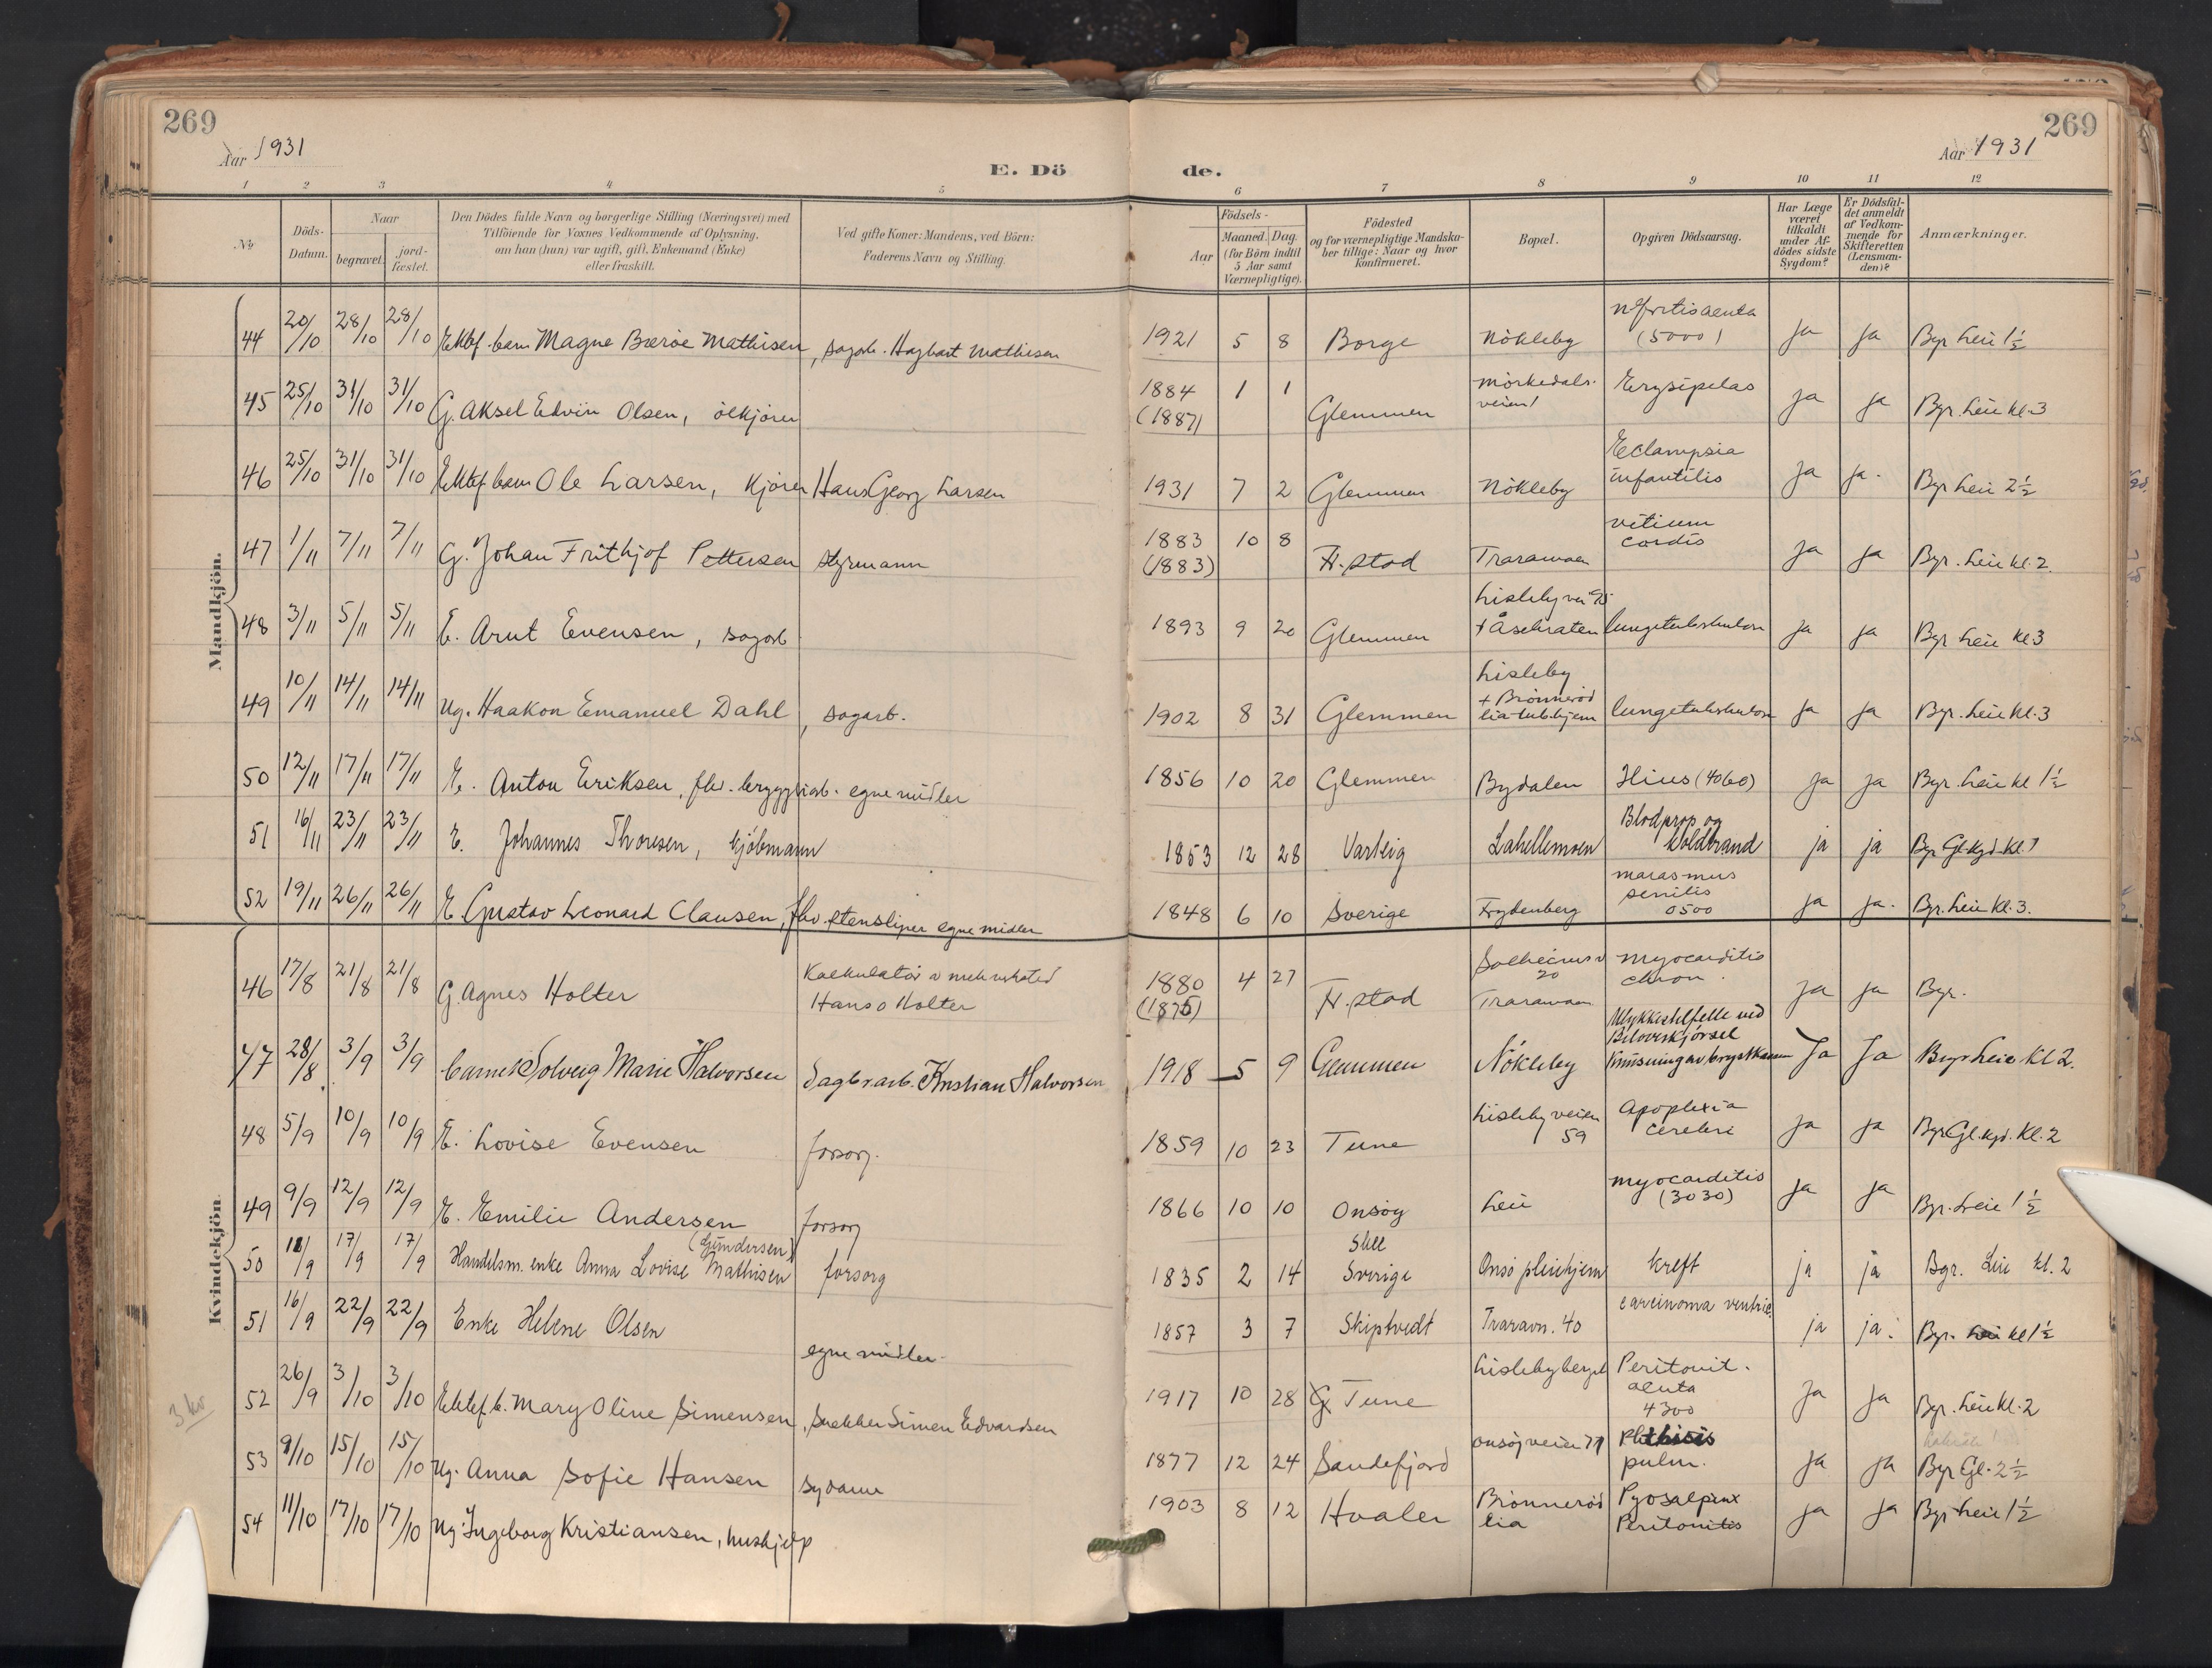 269
269
Aar 1931
Aar 1931
E. Dö de.
1 2 3 4 5 6 7 8 9 10 11 12
No
Döds-Datum.
Naar
begravet.
jord-fæstet.
Den Dödes fulde Navn og borgerlige Stilling (Næringsvei) med
Tilföiende for Voxnes Vedkommende af Oplysning,
om han (hun) var ugift, gift, Enkemand (Enke)
eller fraskilt.
Ved gifte Koner: Mandens, ved Börn:
Faderens Navn og Stilling.
Födsels-
Aar
Maaned. Dag.
(for Börn indtil
5 Aar samt
Værnepligtige).
Födested
og for værnepligtige Mandska-
ber tillige: Naar og hvor
Konfirmeret.
Bopæl.
Opgiven Dödsaarsag.
Har Læge
været
tilkaldt
under Af-
dödes sidste
Sygdom?
Er Dödsfal-
det anmeldt
af Vedkom-
mende for
Skifteretten
(Lensman-
den)?
Anmærkninger.
Mandkjön.
44 20/10 28/10 28/10 Ektef. barn Magne Bærøe Mathisen, sagarb. Hagbart Mathisen 1921 5 8 Borge Nökleby nefritis acuta (5000) ja ja Bgr Leie 1½
45 25/10 31/10 31/10 G. Aksel Edvin Olsen, ölkjörer 1884 (1887) 1 1 Glemmen Mörkedals-veien 1 Erysipelas ja ja Bgr. Leie kl. 3
46 25/10 31/10 31/10 Ektef barn Ole Larsen, kjörer Hans Georg Larsen 1931 7 2 Glemmen Nökleby Eclampsia infantilis ja ja. Bgr Leie 2½
47 1/11 7/11 7/11 G. Johan Frithjof Pettersen styrmann 1883 (1883) 10 8 Fr.stad Traraveien vitium cordis ja ja Bgr. Leie kl. 2.
48 3/11 5/11 5/11 E. Arnt Evensen, sagarb 1893 9 20 Glemmen Lisleby vei 95 + Åsebråten lungetuberkulose ja ja Bgr Leie kl 3
49 10/11 14/11 14/11 Ug. Haakon Emanuel Dahl, sagarb. 1902 8 31 Glemmen Lisleby + Brönneröd lia tub.hjem lungetuberkulose ja ja Bgr. Leie kl. 3
50 12/11 17/11 17/11 E. Anton Eriksen, fhv. bryggeriarb. egne midler 1856 10 20 Glemmen Bydalen Ilius (4060) ja ja Bgr. Leie kl 1½
51 16/11 23/11 23/11 E. Johannes Thoresen, kjöbmann 1853 12 28 Varteig Lahellemoen Blodprop og koldbrand ja ja Bgr Gl. kgd. kl. 1
52 19/11 26/11 26/11 E. Gustav Leonard Clausen, fhv. stensliper egne midler 1848 6 10 Sverige Frydenberg marasmus senilis 0500 ja ja. Bgr. Leie kl. 3.
Kvindekjön.
46 17/8 21/8 21/8 G. Agnes Holter Kalkulatör v mek verksted Hans O Holter 1880 (1875) 4 27 Fr.stad Solheimsv 20 Traraveien myocarditis chron. ja ja Bgr.
47 28/8 3/9 3/9 barnet Solveig Marie Halvorsen Sagbr.arb. Kristian Halvorsen 1918 5 9 Glemmen Nökleby Ulykkestilfelle ved Biloverkjörsel Knusning av brystkassen Ja Ja Bgr Leie kl 2.
48 5/9 10/9 10/9 E. Lovise Evensen forsorg. 1859 10 23 Tune Lisleby veien 59 Apoplexia cerebri ja ja Bgr Gl. kgd. kl. 2
49 9/9 12/9 12/9 E. Emilie Andersen forsorg 1866 10 10 Onsøy Leie myocarditis (3030) ja ja Bgr. Leie 1½
50 12/9 17/9 17/9 Handelsm. enke Anna Lovise Mathisen (Gundersen) forsorg 1835 2 14 Skee Sverige Onsö pleiehjem kreft ja ja Bgr. Leie kl. 2
51 16/9 22/9 22/9 Enke Helene Olsen egne midler 1857 3 7 Skiptvedt Traravn. 40 carcinoma ventric. ja ja. Bgr. Leie kl 1½
3 kv
52 26/9 3/10 3/10 Ektef. b. Mary Oline Simensen, Snekker Simen Edvardsen 1917 10 28 G. Tune Lislebyberget Peritonit. acuta 4300 ja ja Bgr. Leie kl. 2
53 9/10 15/10 15/10 Ug. Anna Sofie Hansen sydame 1877 12 24 Sandefjord Onsöyveien 71 Phthisis pulm. ja ja Bgr Gl. 2½
54 11/10 17/10 17/10 Ug. Ingeborg Kristiansen, hushjelp 1903 8 12 Hvaler Brönneröd lia Pyosalpinx Peritonitis ja ja Bgr Leie 1½